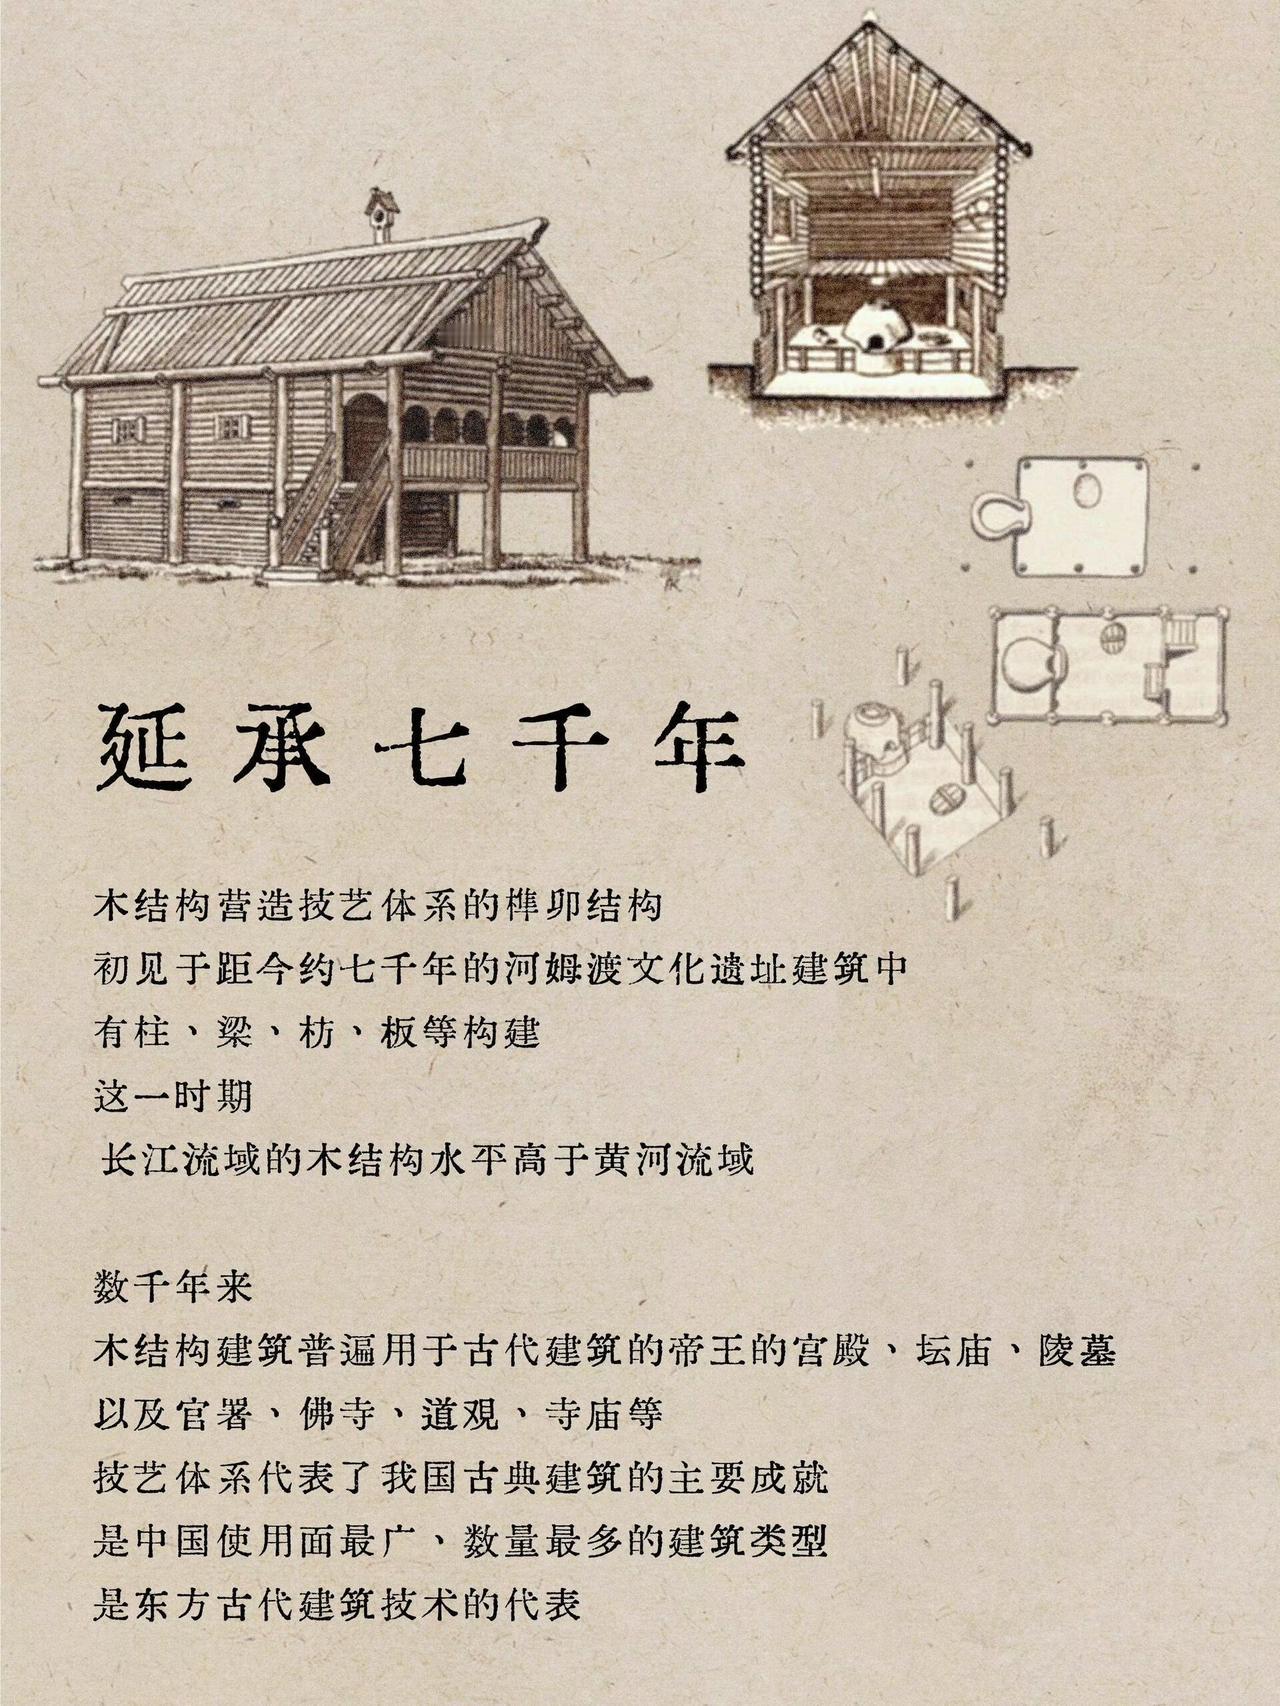 延承七千年
木结构营造技艺体系的榫卯结构
初见于距今约七千年的河姆渡文化遗址建筑中
有柱、梁、枋、板等构建
这一时期
长江流域的木结构水平高于黄河流域
数千年来
木结构建筑普遍用于古代建筑的帝王的宫殿、坛庙、陵墓
以及官署、佛寺、道观、寺庙等
技艺体系代表了我国古典建筑的主要成就
是中国使用面最广、数量最多的建筑类型
是东方古代建筑技术的代表